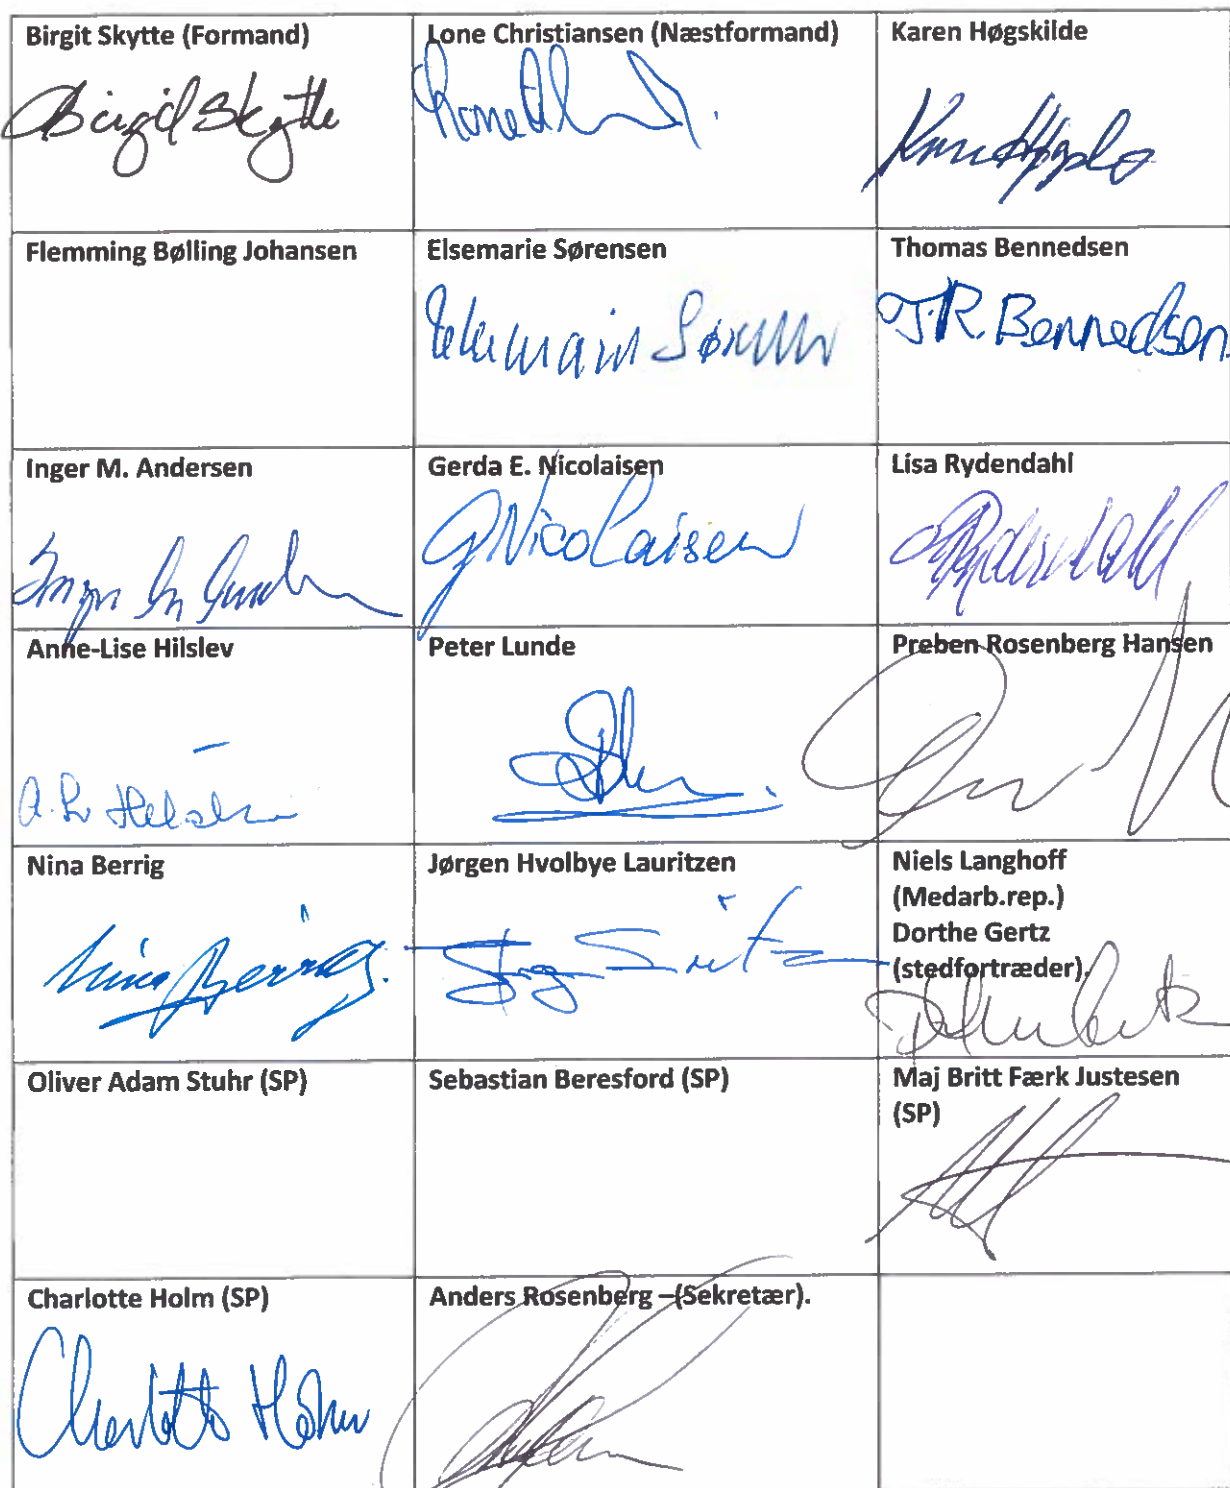 Birgit Skytte (Formand)
Birgit Skytte
Lone Christiansen (Næstformand)
Karen Høgskilde
Flemming Bølling Johansen
Elsemarie Sørensen
Thomas Bennedsen
T.R. Bennedsen
Inger M. Andersen
Gerda E. Nicolaisen
G Nicolaisen
Lisa Rydendahl
Anne-Lise Hilslev
Peter Lunde
Preben Rosenberg Hansen
Nina Berrig
Nina Berrig
Jørgen Hvolbye Lauritzen
Niels Langhoff
(Medarb.rep.)
Dorthe Gertz
(stedfortræder).
Oliver Adam Stuhr (SP)
Sebastian Beresford (SP)
Maj Britt Færk Justesen
(SP)
Charlotte Holm (SP)
Charlotte Holm
Anders Rosenberg –(Sekretær).